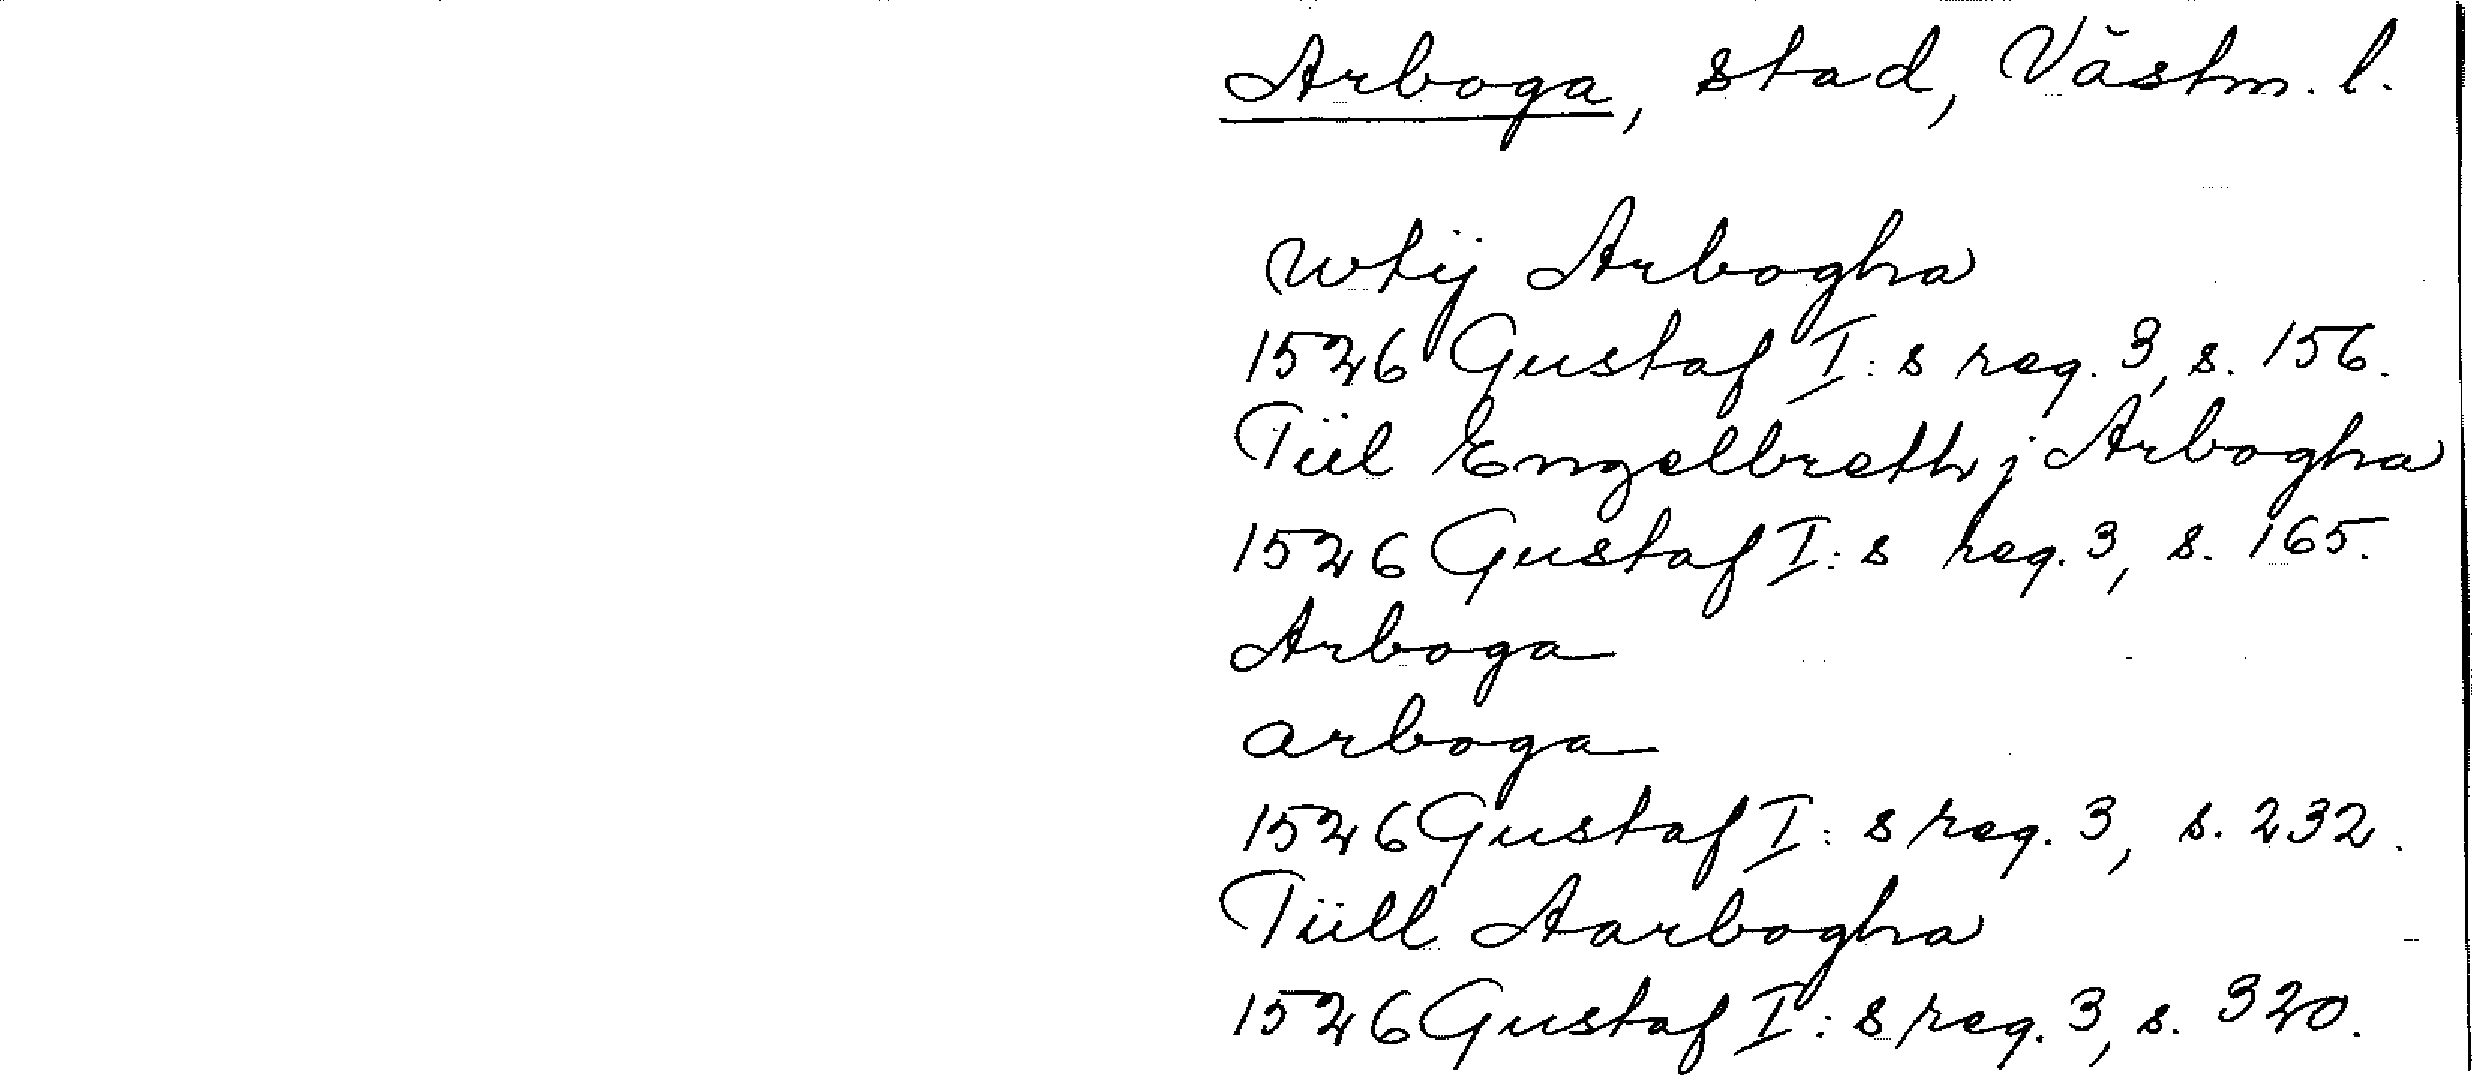 Arboga, stad, Västm. l.
wtij Arbogha
1526 Gustaf I:s reg. 3, s. 156.
Tiil Engelbreth j Arbogha
1526 Gustaf I:s reg. 3, s. 165.
Arboga
arboga
1526 Gustaf I:s reg. 3, s. 232.
Tiill Aarbogha
1526 Gustaf I:s reg. 3, s. 320.